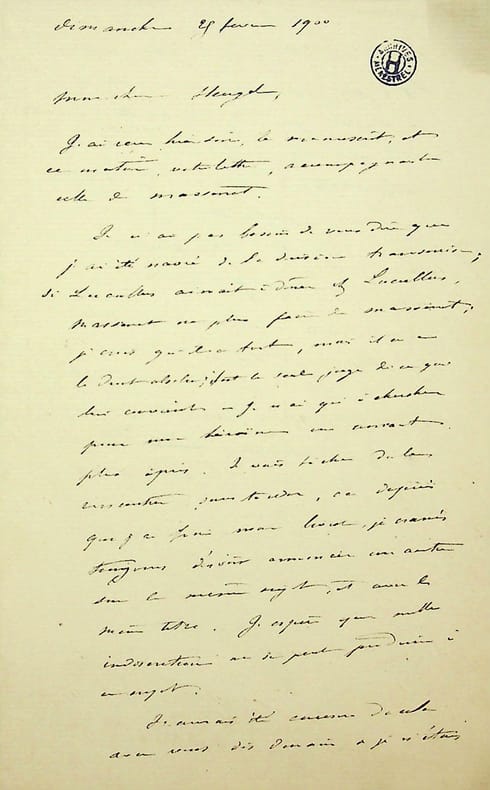 dimanche 25 fevrier 1900
ARCHIVES H MENESTREL
mon cher Heugel,
J'ai reçu hier soir, le manuscrit, et
ce matin, votre lettre, accompagnant
celle de Massenet.
Je n'ai pas besoin de vous dire que
j'ai été navré de la décision transmise;
si Lucullus aimait à dîner chez Lucullus,
Massenet n'a plus faim de Massenet;
je crois qu'il a tort, mais il a
le droit absolu; il est le seul juge de ce qui
lui convient - Je n'ai qu'à chercher
pour mon héroïne un amant
plus épris. Je vais tâcher de le
rencontrer sans tarder, car depuis
que j'ai fini mon livret, je crains
toujours d'avoir annoncer un autre
sur le même sujet, et avec le
même titre. J'espère que nulle
indiscrétion ne se peut produire à
ce sujet.
J'aurais été causer de cela
avec vous dès demain si je n'étais